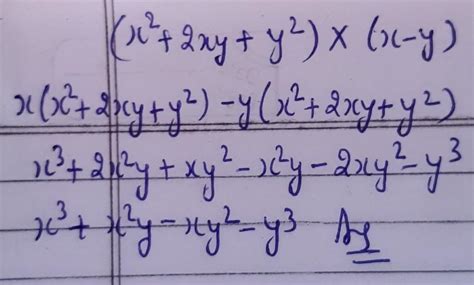 (x²+2xy+y²) × (x-y)
x(x²+2xy+y²) -y(x²+2xy+y²)
x³+2x²y+xy²-x²y-2xy²-y³
x³+x²y-xy²-y³